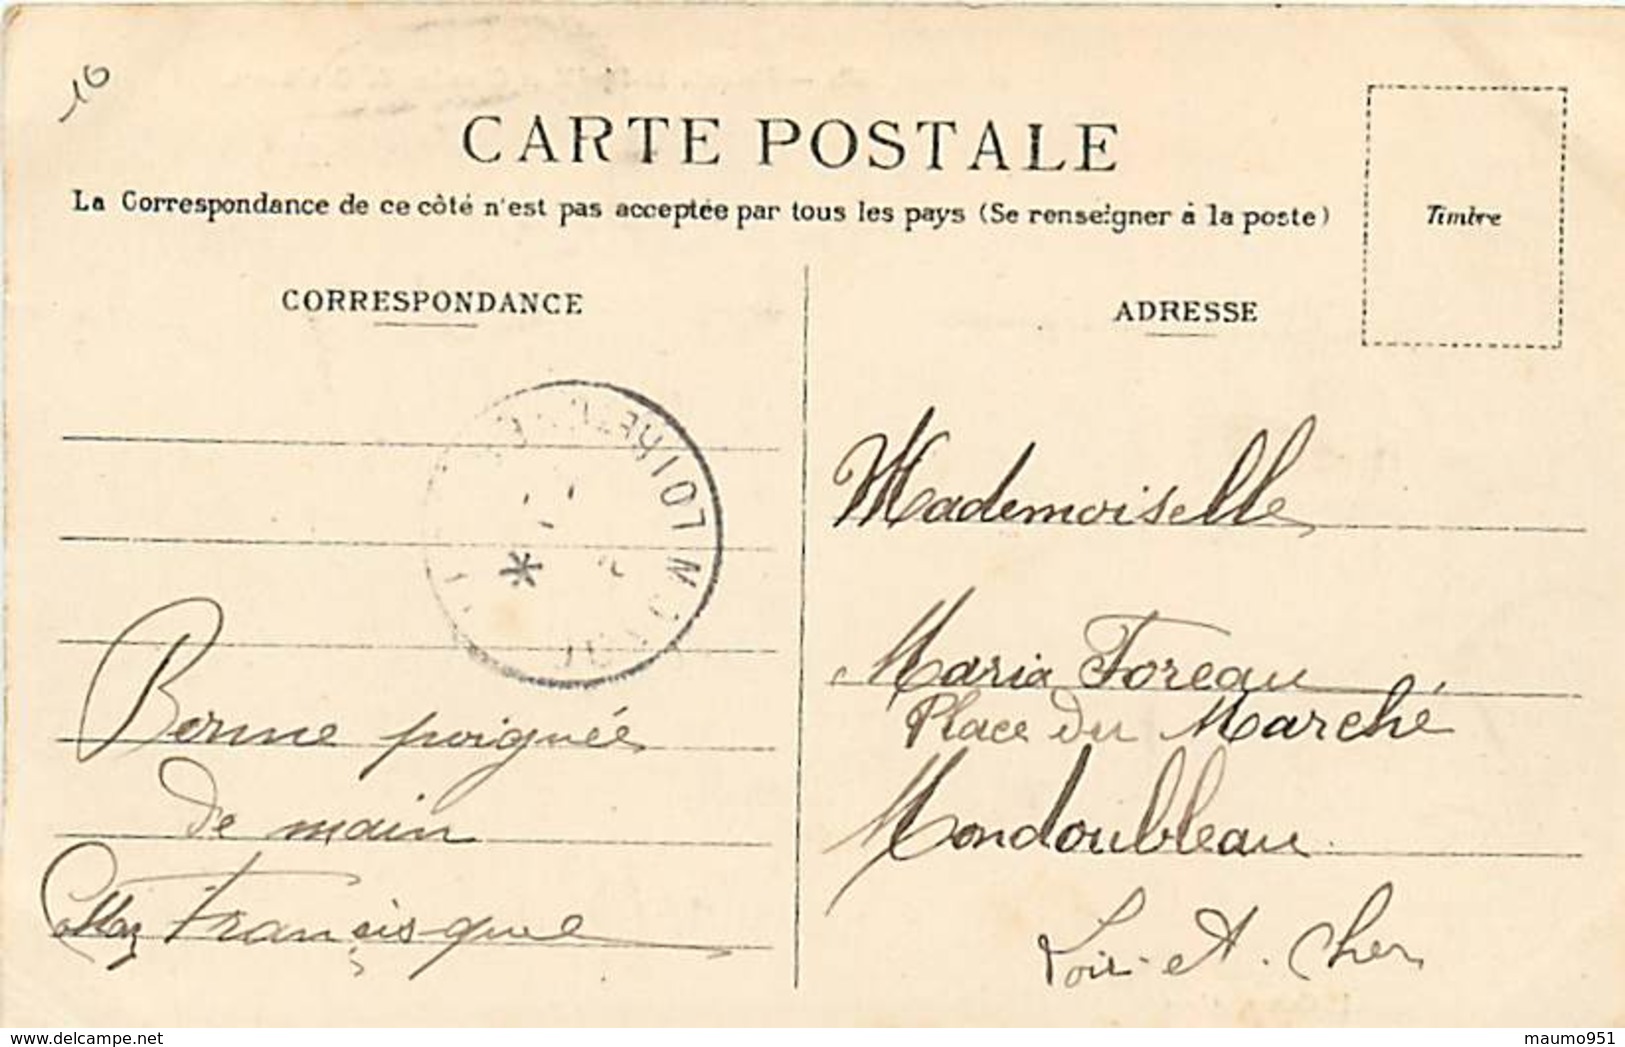 16
CARTE POSTALE
La Correspondance de ce côté n'est pas acceptée par tous les pays (Se renseigner à la poste)
Timbre
CORRESPONDANCE
ADRESSE
Bonne poignée
de main
Francisque
Mademoiselle
Maria Foreau
Place du Marché
Mondoubleau
Loir-et-Cher
maumo951